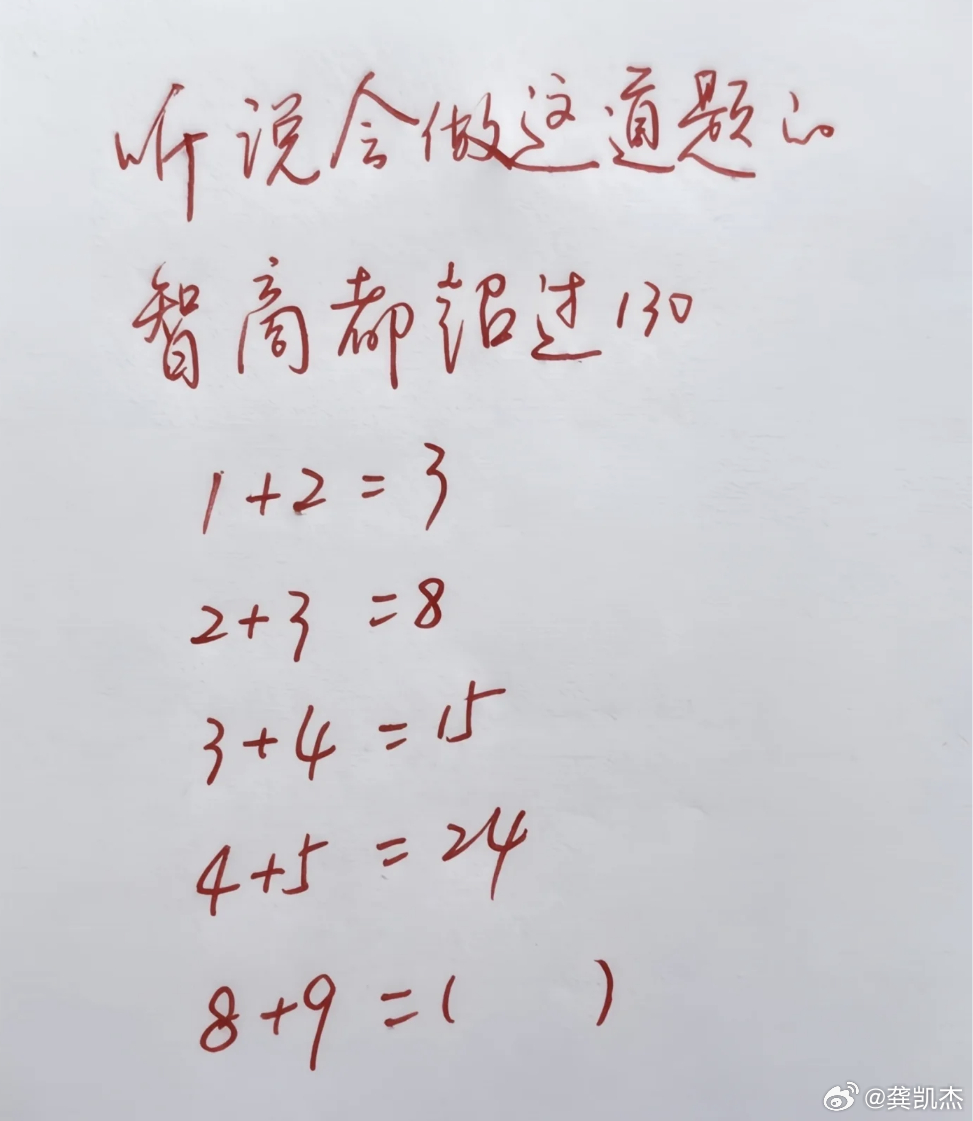 听说会做这道题的
智商都超过130
1+2=3
2+3=8
3+4=15
4+5=24
8+9=( )
@龚凯杰